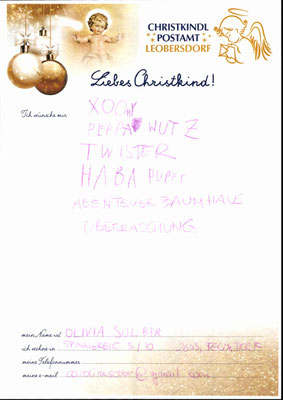 CHRISTKINDL
POSTAMT
LEOBERSDORF
Liebes Christkind!
Ich wünsche mir
XOOM
PEPPA WUTZ
TWISTER
HABA PUPPE
ABENTEUER BAUMHAUS
ÜBERRASCHUNG
mein Name ist OLIVIA
ich wohne in
meine Telefonnummer
meine e-mail @gmail.com